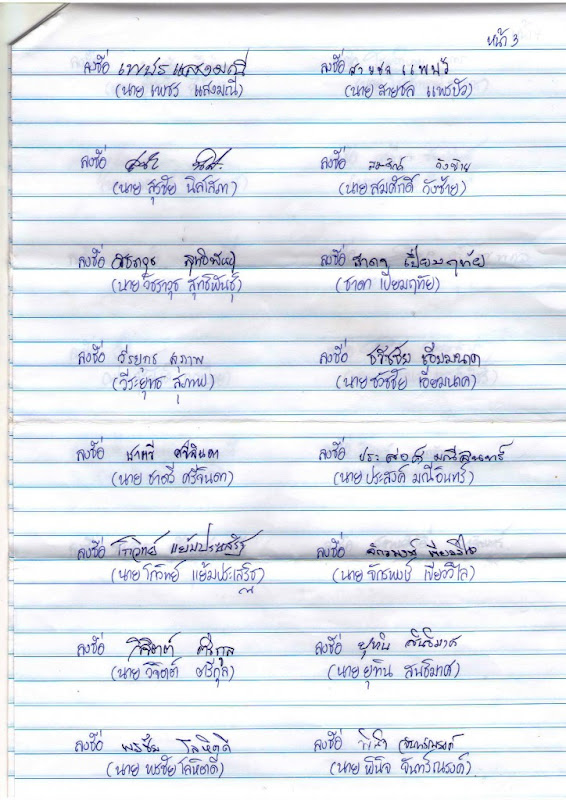 หน้า 3
ลงชื่อ เพชร แสงมณี ลงชื่อ สายชล แพบัว
(นาย เพชร แสงมณี) (นาย สายชล แพรบัว)
ลงชื่อ ลงชื่อ สมศักดิ์ วังซ้าย
(นาย สุรชัย นิสโสภา) (นาย สมศักดิ์ วังซ้าย)
ลงชื่อ วัชราวุธ สุทธิพันธุ์ ลงชื่อ ชาดา เปี่ยมฤทัย
(นาย วัชราวุธ สุทธิพันธุ์) (ชาดา เปี่ยมฤทัย)
ลงชื่อ วีรยุทธ สุภาพ ลงชื่อ ธวัชชัย เอี่ยมนาค
(วีระยุทธ สุภาพ) (นาย ธวัชชัย เอี่ยมนาค)
ลงชื่อ ชาตรี ศรีจินดา ลงชื่อ ประสงค์ มณีอินทร์
(นาย ชาตรี ศรีจินดา) (นาย ประสงค์ มณีอินทร์)
ลงชื่อ โกวิทย์ แย้มประเสริฐ ลงชื่อ จักรพงษ์ เขียววิไล
(นาย โกวิทย์ แย้มประเสริฐ) (นาย จักรพงษ์ เขียววิไล)
ลงชื่อ วิจิตต์ ตรีกุล ลงชื่อ ยุทิน สนธิมาศ
(นาย วิจิตต์ ตรีกุล) (นาย ยุทิน สนธิมาศ)
ลงชื่อ พรชัย โลหิตดี ลงชื่อ พินิจ จันทร์ณรงค์
(นาย พรชัย โลหิตดี) (นาย พินิจ จันทร์ณรงค์)